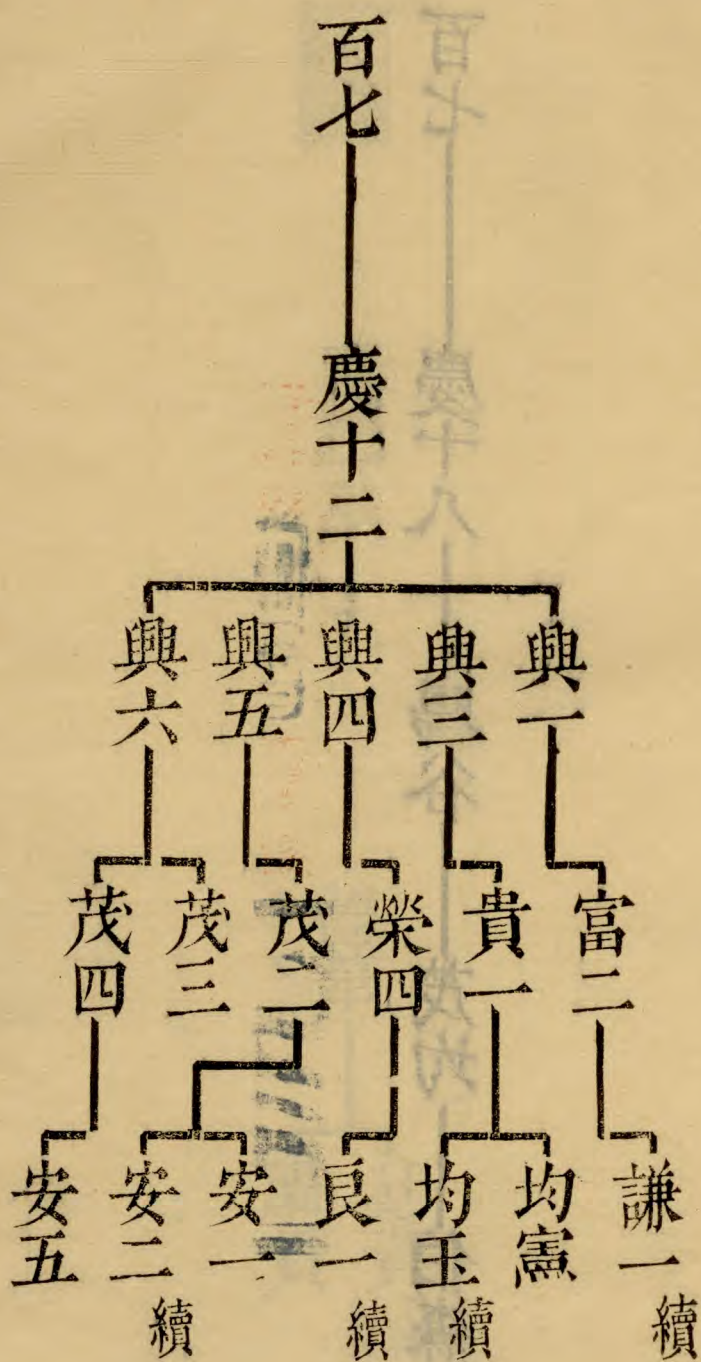 百七
慶十二
興一
興三
興四
興五
興六
富二
貴一
榮四
茂二
茂三
茂四
謙一
續
均憲
均玉
續
良一
續
安一
安二
續
安五